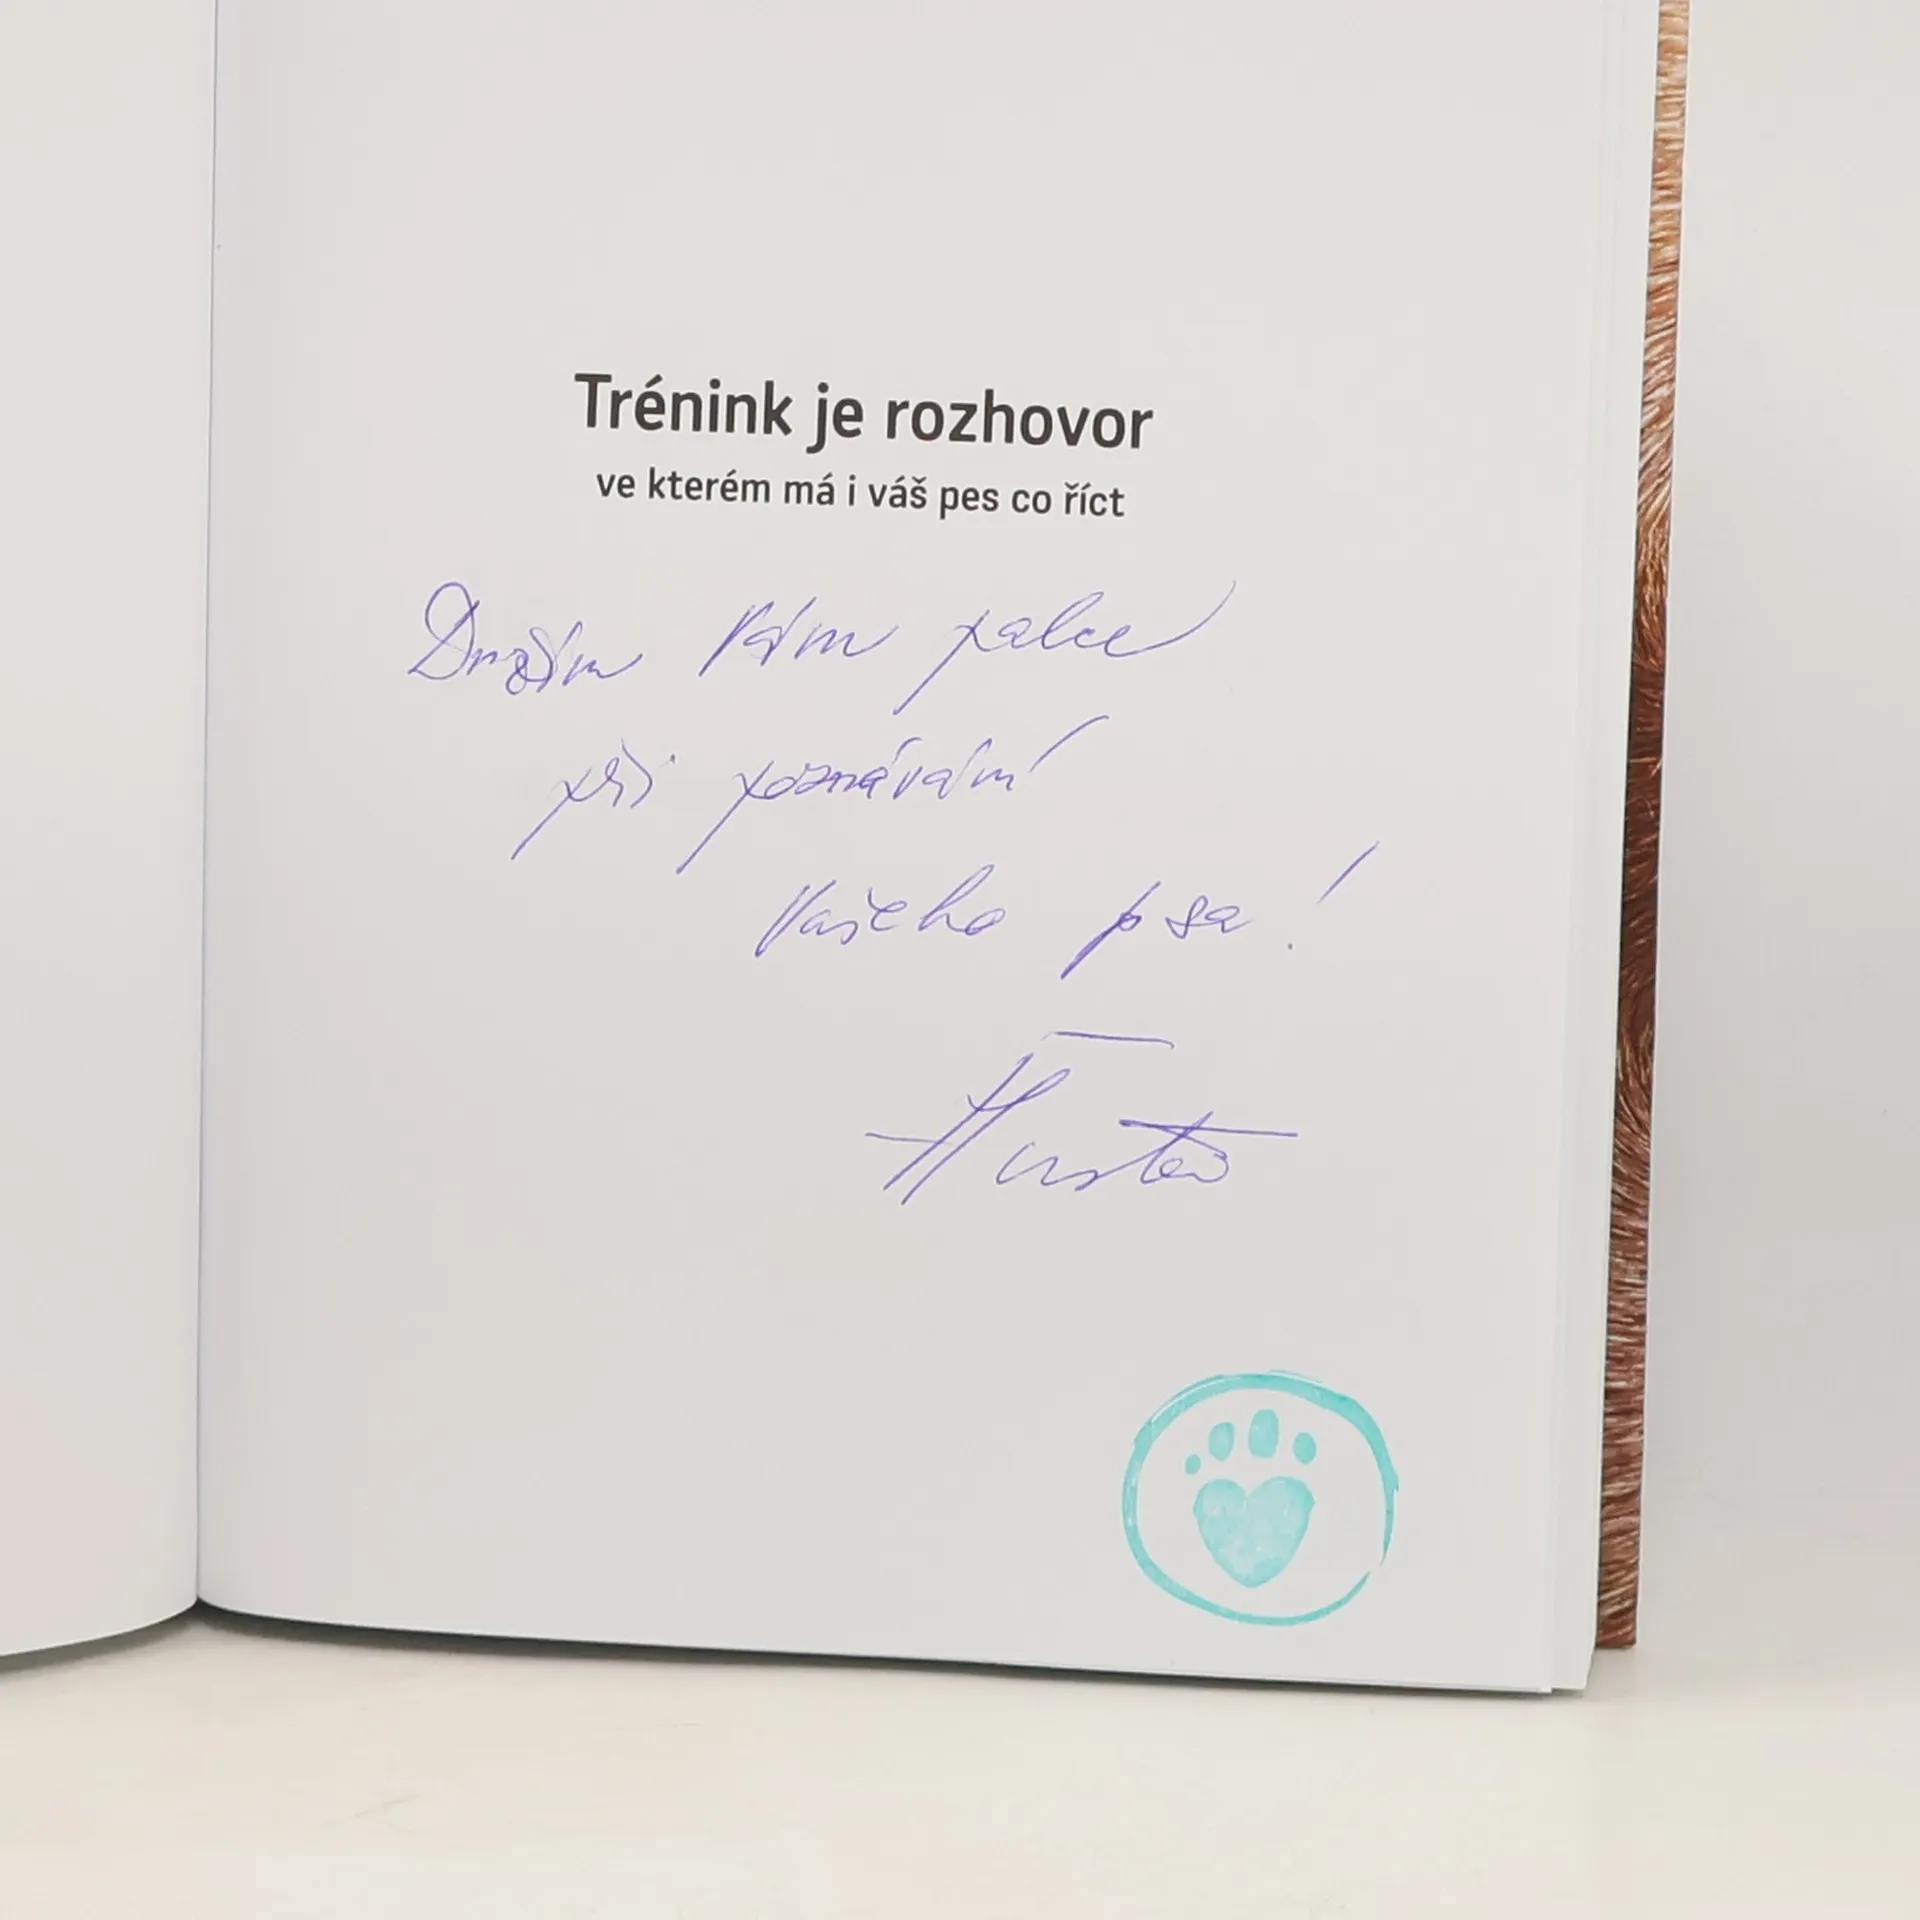 Trénink je rozhovor
ve kterém má i váš pes co říct
Držím Vám palce
při poznávání
Vašeho psa!